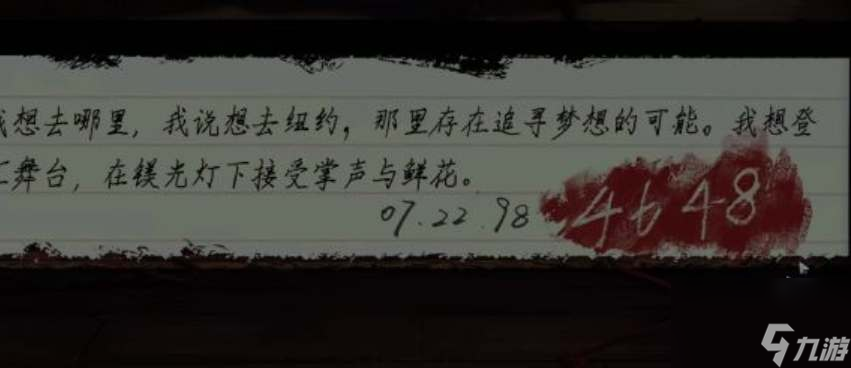 想去哪里，我说想去纽约，那里存在追寻梦想的可能。我想登
舞台，在镁光灯下接受掌声与鲜花。
07.22.98
4648
九游